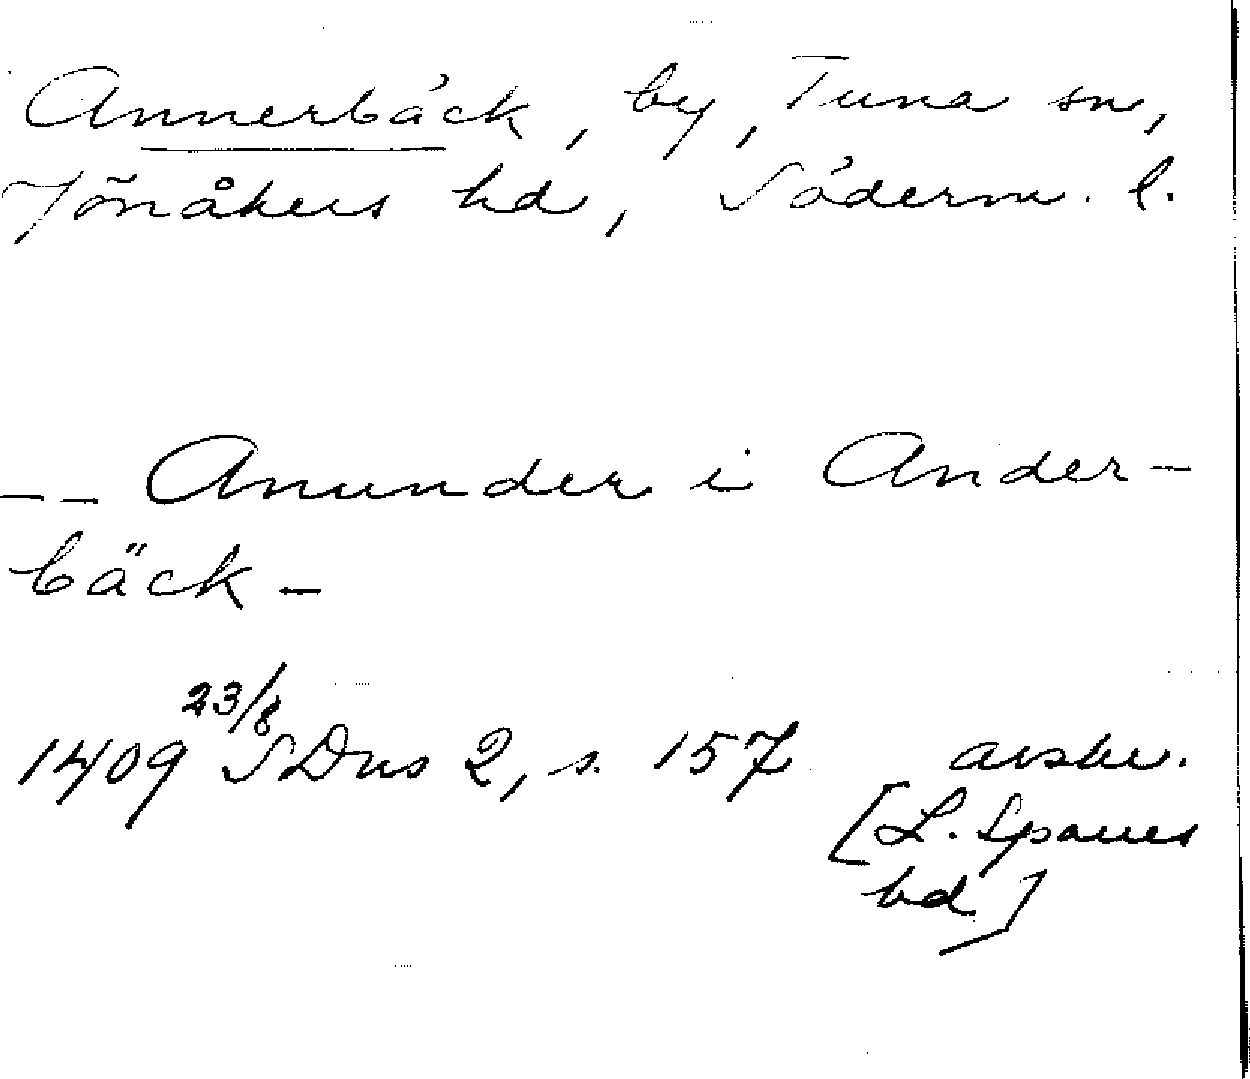 Annerbäck, by, Tuna sn,
Jönåkers hd, Söderm. l.
-- Anunder i Ander-
bäck -
1409 23/8 SDns 2, s. 157 avskr.
[L. Sparres
bd]